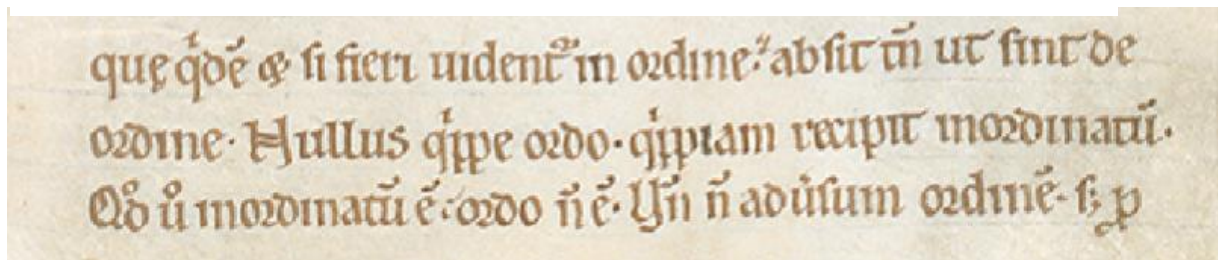 quę q̇dē & si fieri uident᷑ in ordine. absit tn̄ ut sint de
ordine. Nullus qͥppe ordo. qͥppiam recipit inordinatū.
Qd̊ ů inordinatū ē. ordo n̄ ē. Vn̄ n̄ aduͥsum ordinē. sꝫ ꝓ